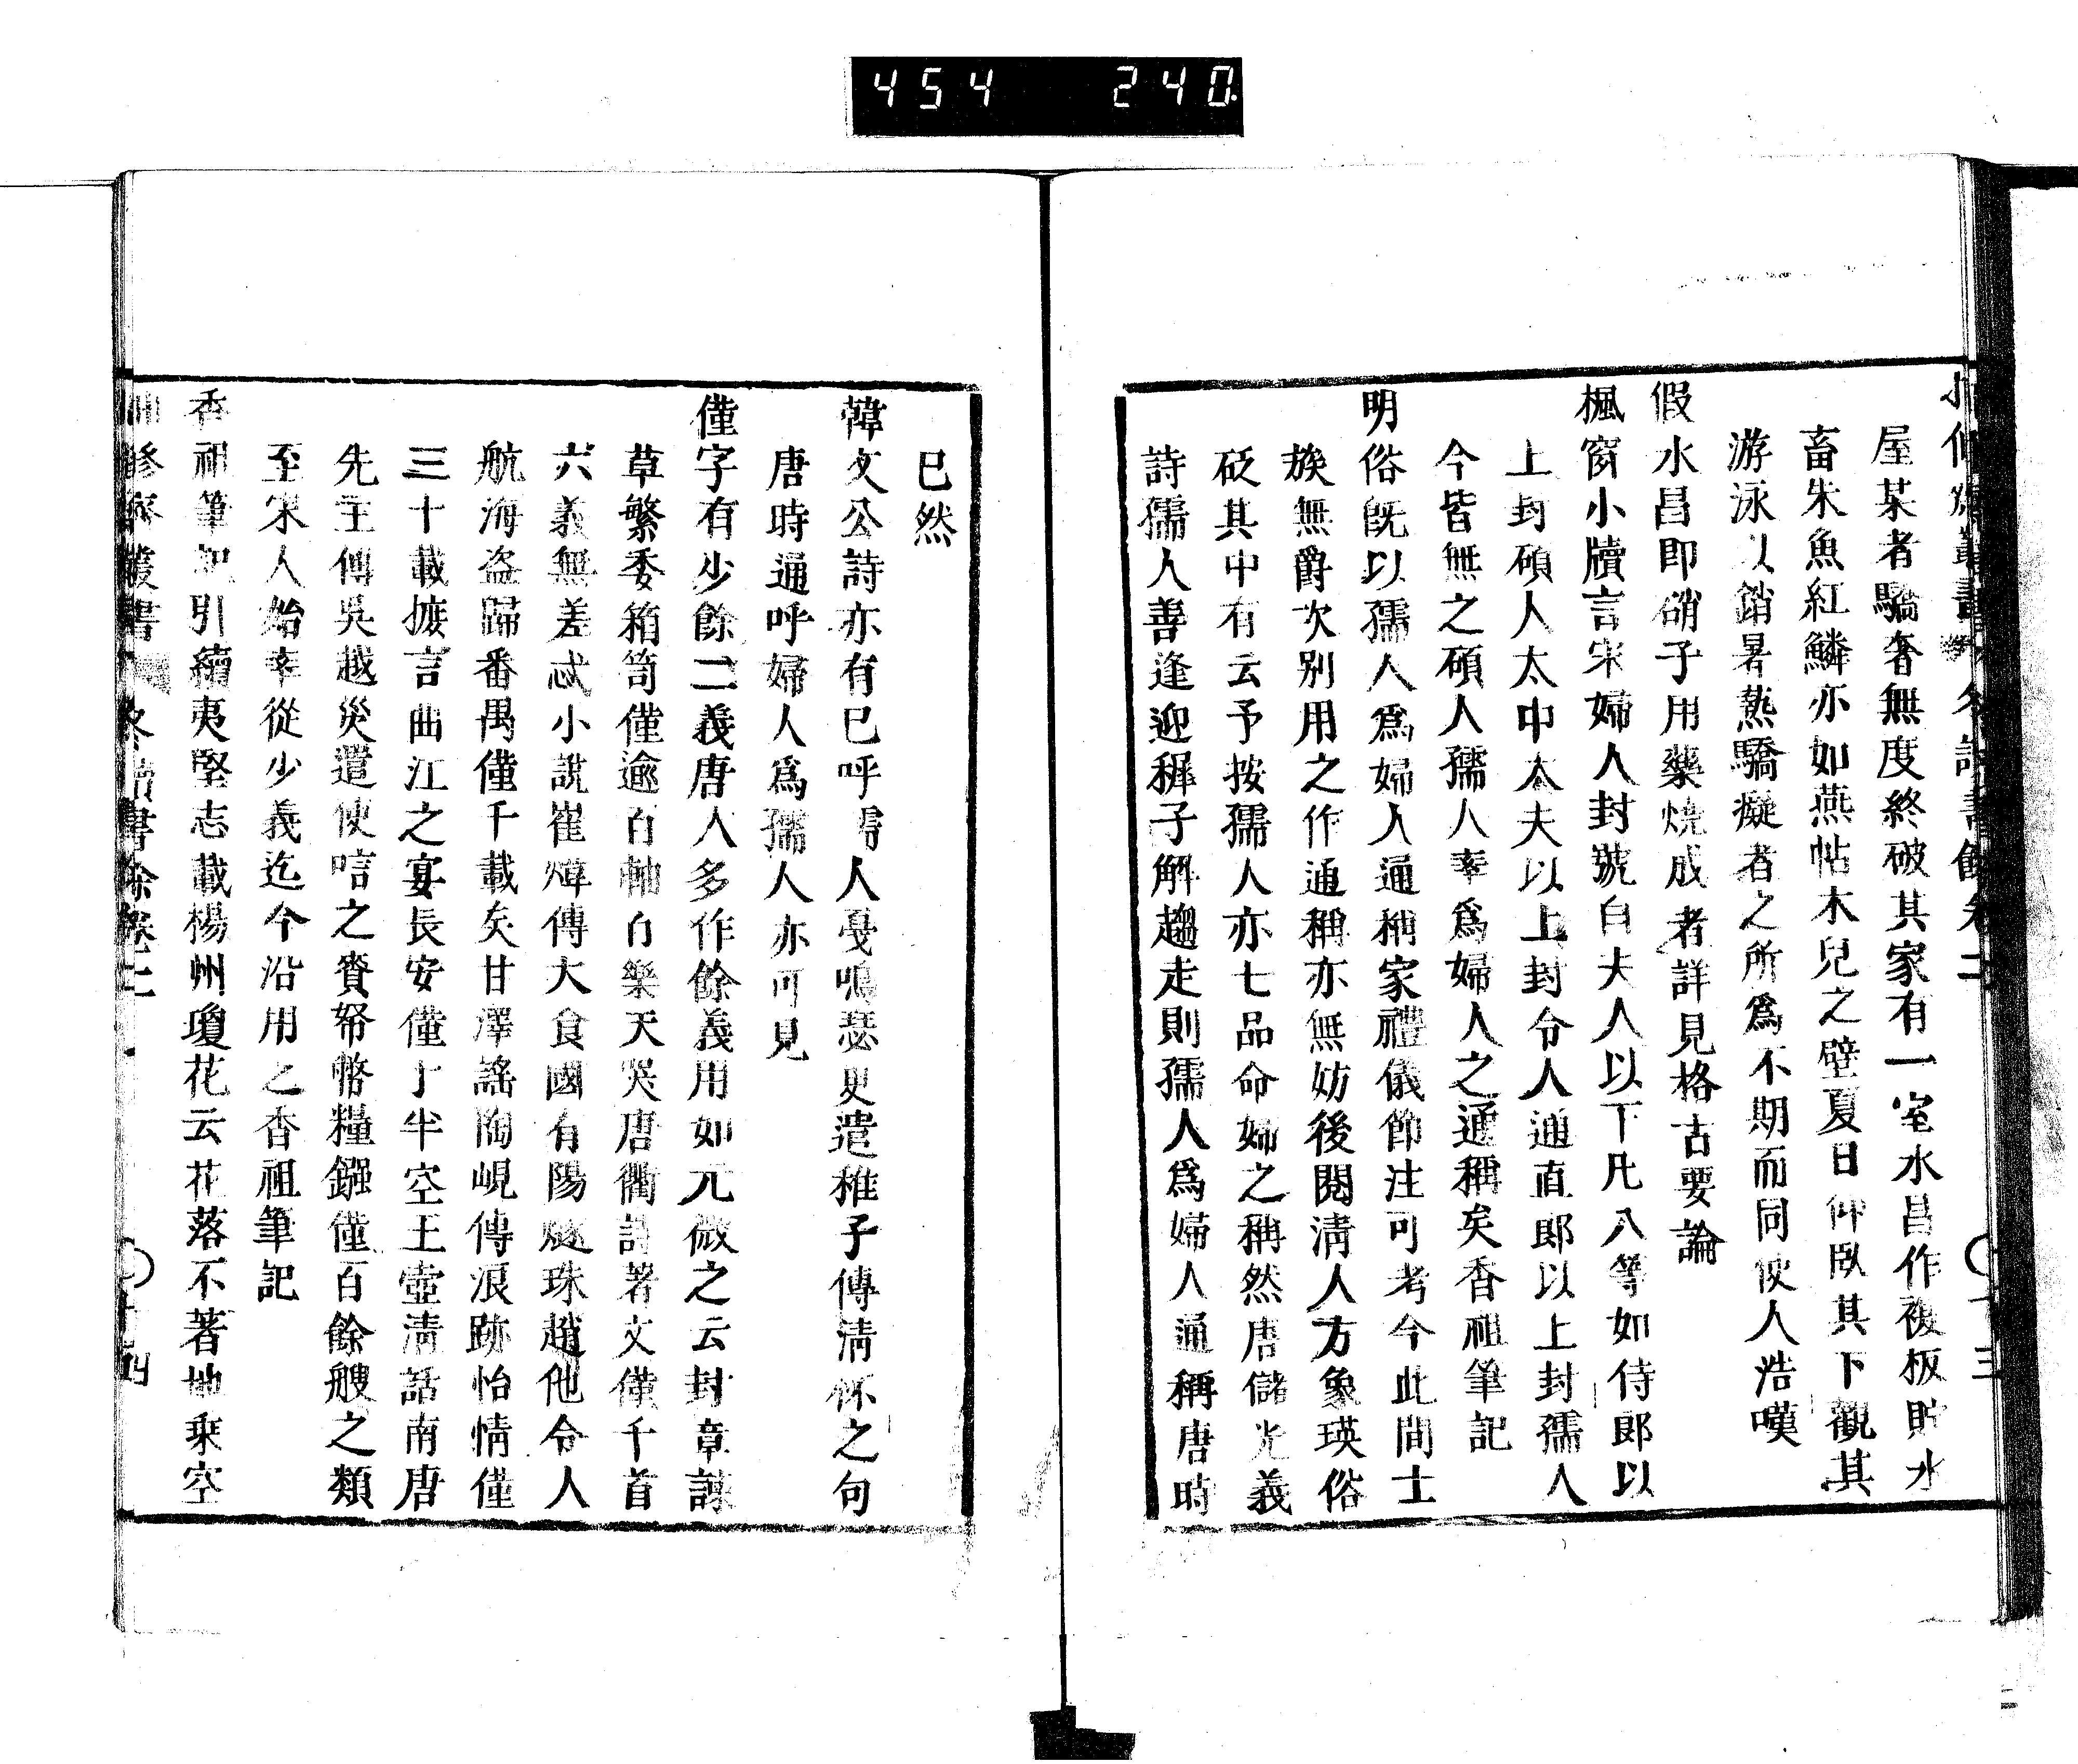 454 240.
屋某者驕奢無度終破其家有一室水昌作複板貯水
畜朱魚紅鱗亦如燕帖木兒之壁夏日仰臥其下觀其
游泳以銷暑熱驕癡者之所爲不期而同使人浩嘆
假水昌即硝子用藥燒成者詳見格古要論
楓窗小牘言宋婦人封號自夫人以下凡八等如侍郎以
上封碩人太中太夫以上封令人通直郎以上封孺人
今皆無之碩人孺人率爲婦人之通稱矣香祖筆記
明俗旣以孺人爲婦人通稱家禮儀節注可考今此間士
族無爵次別用之作通稱亦無妨後閱淸人方象瑛俗
砭其中有云予按孺人亦七品命婦之稱然唐儲光義
詩孺人善逢迎穉子解趨走則孺人爲婦人通稱唐時
已然
韓文公詩亦有已呼孺人戞鳴瑟更遣稚子傳淸杯之句
唐時通呼婦人爲孺人亦可見
僅字有少餘二義唐人多作餘義用如元微之云封章諫
草繁委箱笥僅逾百軸白樂天哭唐衢詩著文僅千首
六義無差忒小說崔煒傳大食國有陽燧珠趙他令人
航海盜歸番禺僅千載矣甘澤謠陶峴傳浪跡怡情僅
三十載摭言曲江之宴長安僅于半空王壺淸話南唐
先主傳吳越災遣使唁之賚帑幣糧鏹僅百餘艘之類
至宋人始率從少義迄今沿用之香祖筆記
香祖筆記引續夷堅志載楊州瓊花云花落不著地乗空
修齋叢書 冬讀書餘卷二 十四